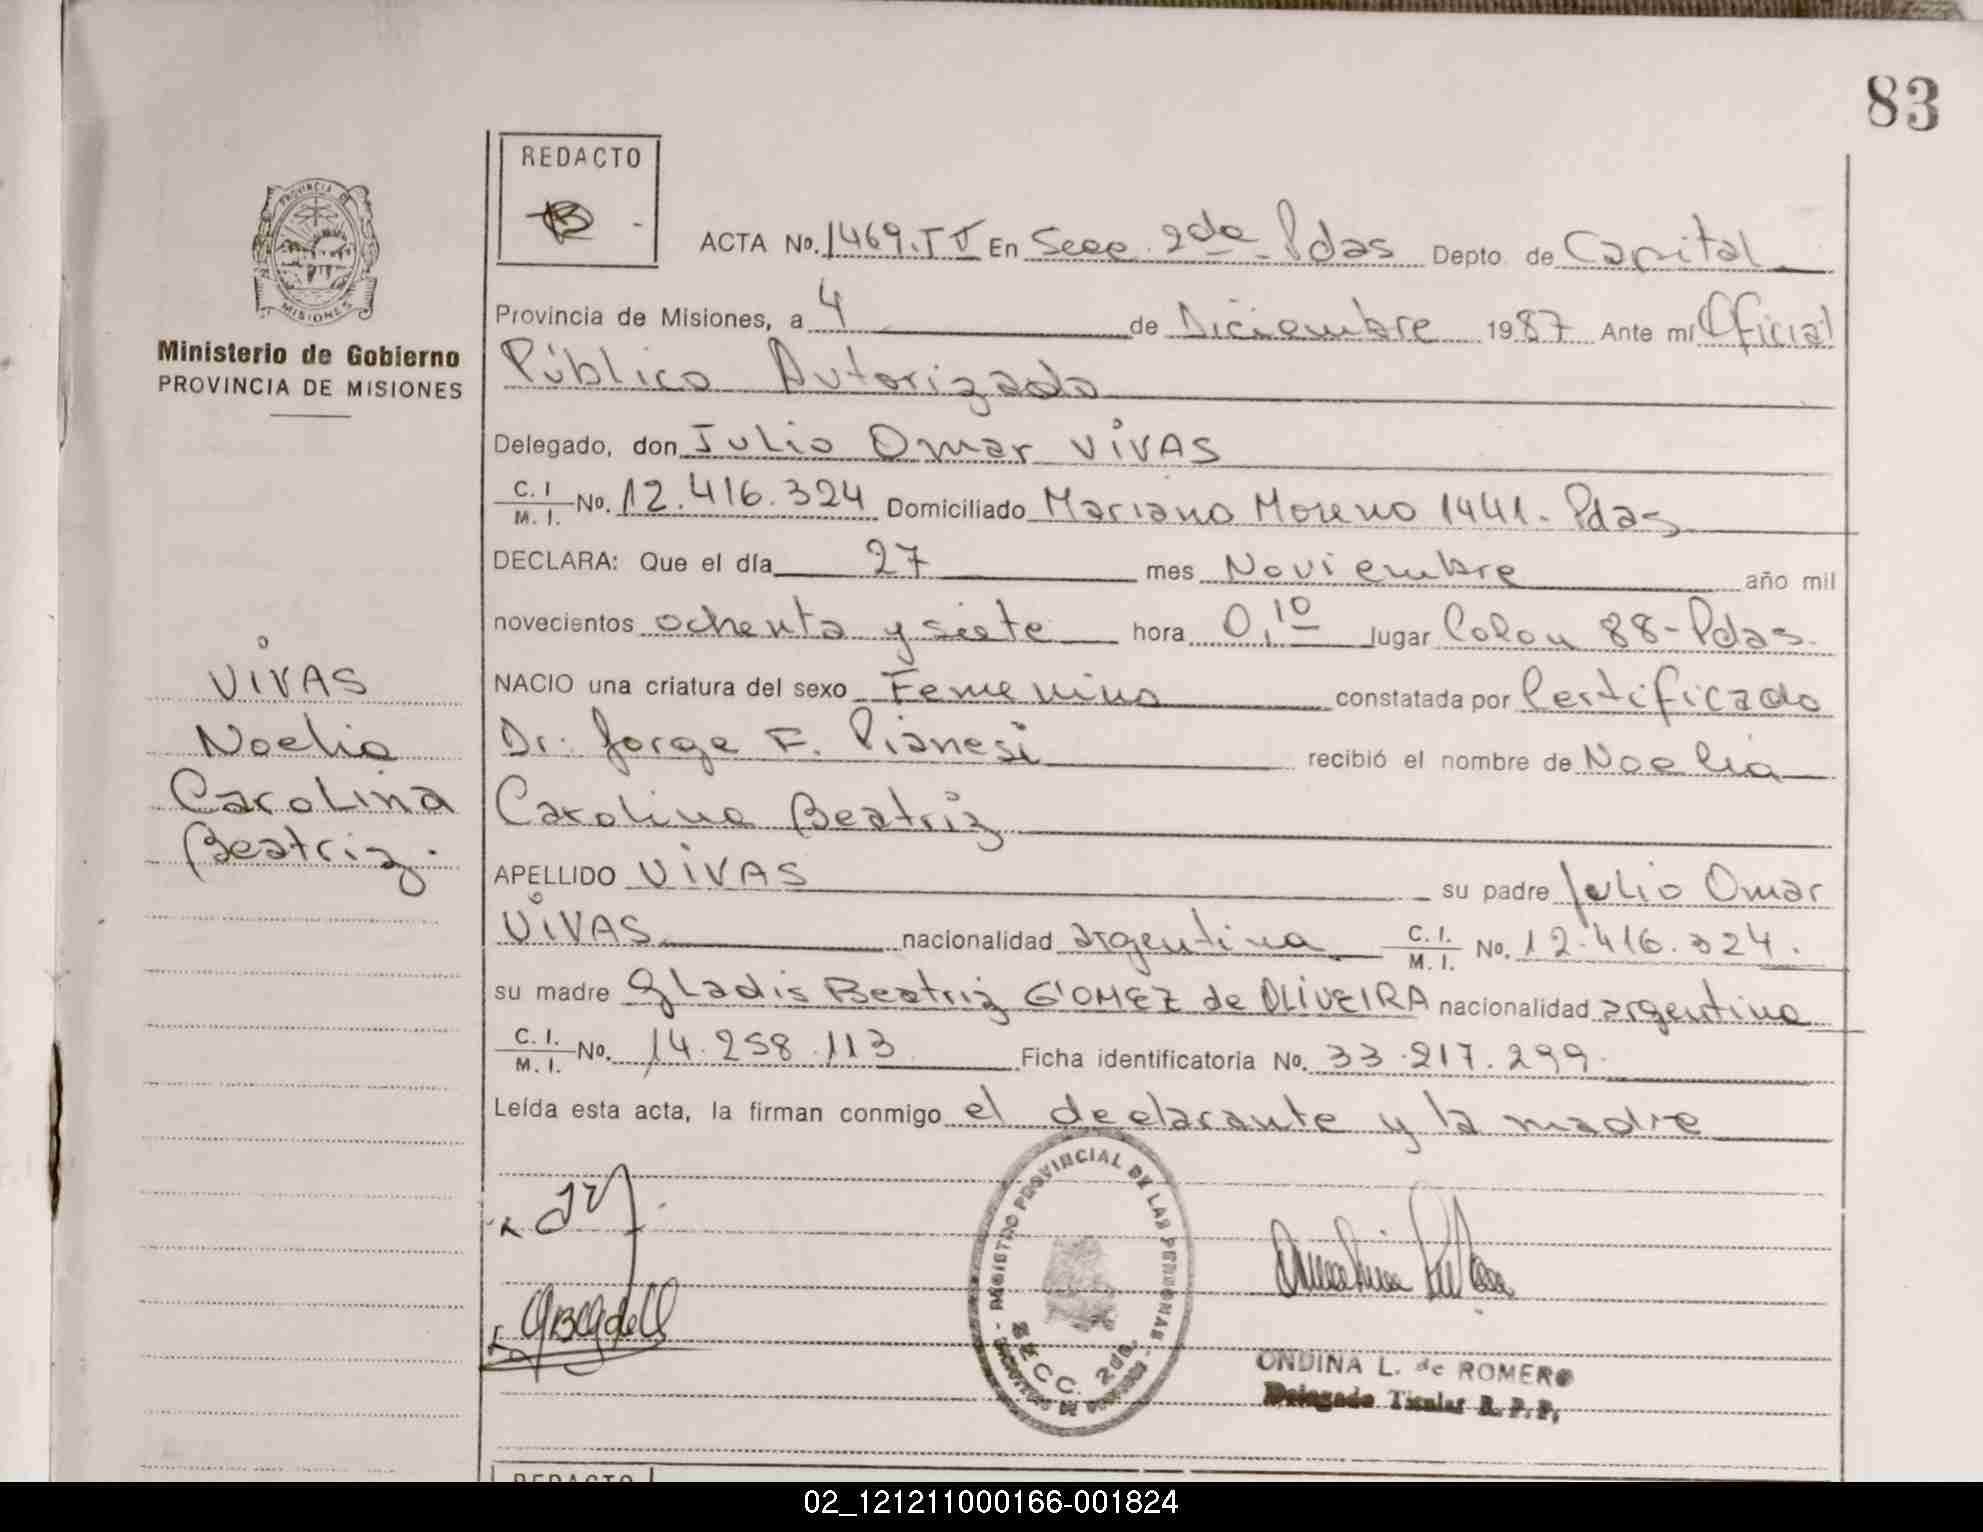 83
REDACTO
ACTA No. 1469.TV En Secc. 2da Pdas Depto de Capital
PROVINCIA DE
MISIONES
Provincia de Misiones, a 4 de Diciembre 1987 Ante mí Oficial
Ministerio de Gobierno
PROVINCIA DE MISIONES
Público Autorizado
Delegado, don Julio Omar VIVAS
C. I. / M. I. No. 12.416.324 Domiciliado Mariano Moreno 1441 - Pdas
DECLARA: Que el día 27 mes Noviembre año mil
novecientos ochenta y siete hora 0,10 lugar Colon 88 - Pdas.
NACIO una criatura del sexo Femenino constatada por Certificado
Dr. Jorge F. Pianesi recibió el nombre de Noelia
Carolina Beatriz
VIVAS
Noelia
Carolina
Beatriz.
APELLIDO VIVAS su padre Julio Omar
VIVAS nacionalidad argentina C. I. / M. I. No. 12.416.324.
su madre Gladis Beatriz GOMEZ de OLIVEIRA nacionalidad argentina
C. I. / M. I. No. 14.258.113 Ficha identificatoria No. 33.217.299.
Leída esta acta, la firman conmigo el declarante y la madre
REGISTRO PROVINCIAL DE LAS PERSONAS
SECC. 2da.
ONDINA L. de ROMERO
Delegado Titular R. P. P.
REDACTO
02_121211000166-001824